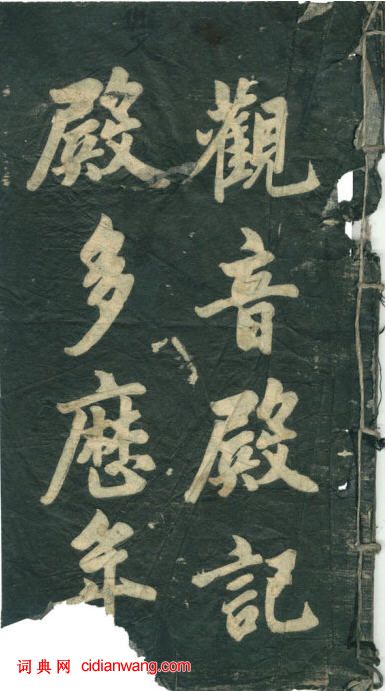 觀音殿記
殿多歷年
词典网 cidianwang.com